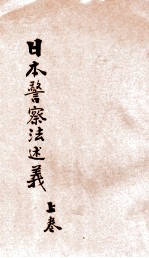 日本警察法述義
上卷